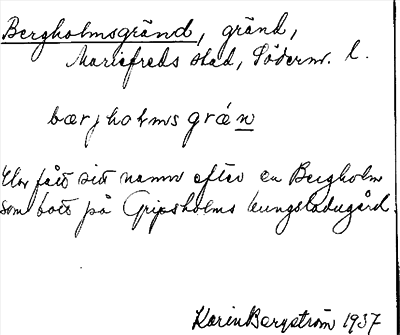 Bergholmsgränd, gränd,
Mariefreds stad, Söderm. l.
bærjholmsgrän
Har fått sitt namn efter en Bergholm
som bott på Gripsholms kungsladugård.
Karin Bergström 1937